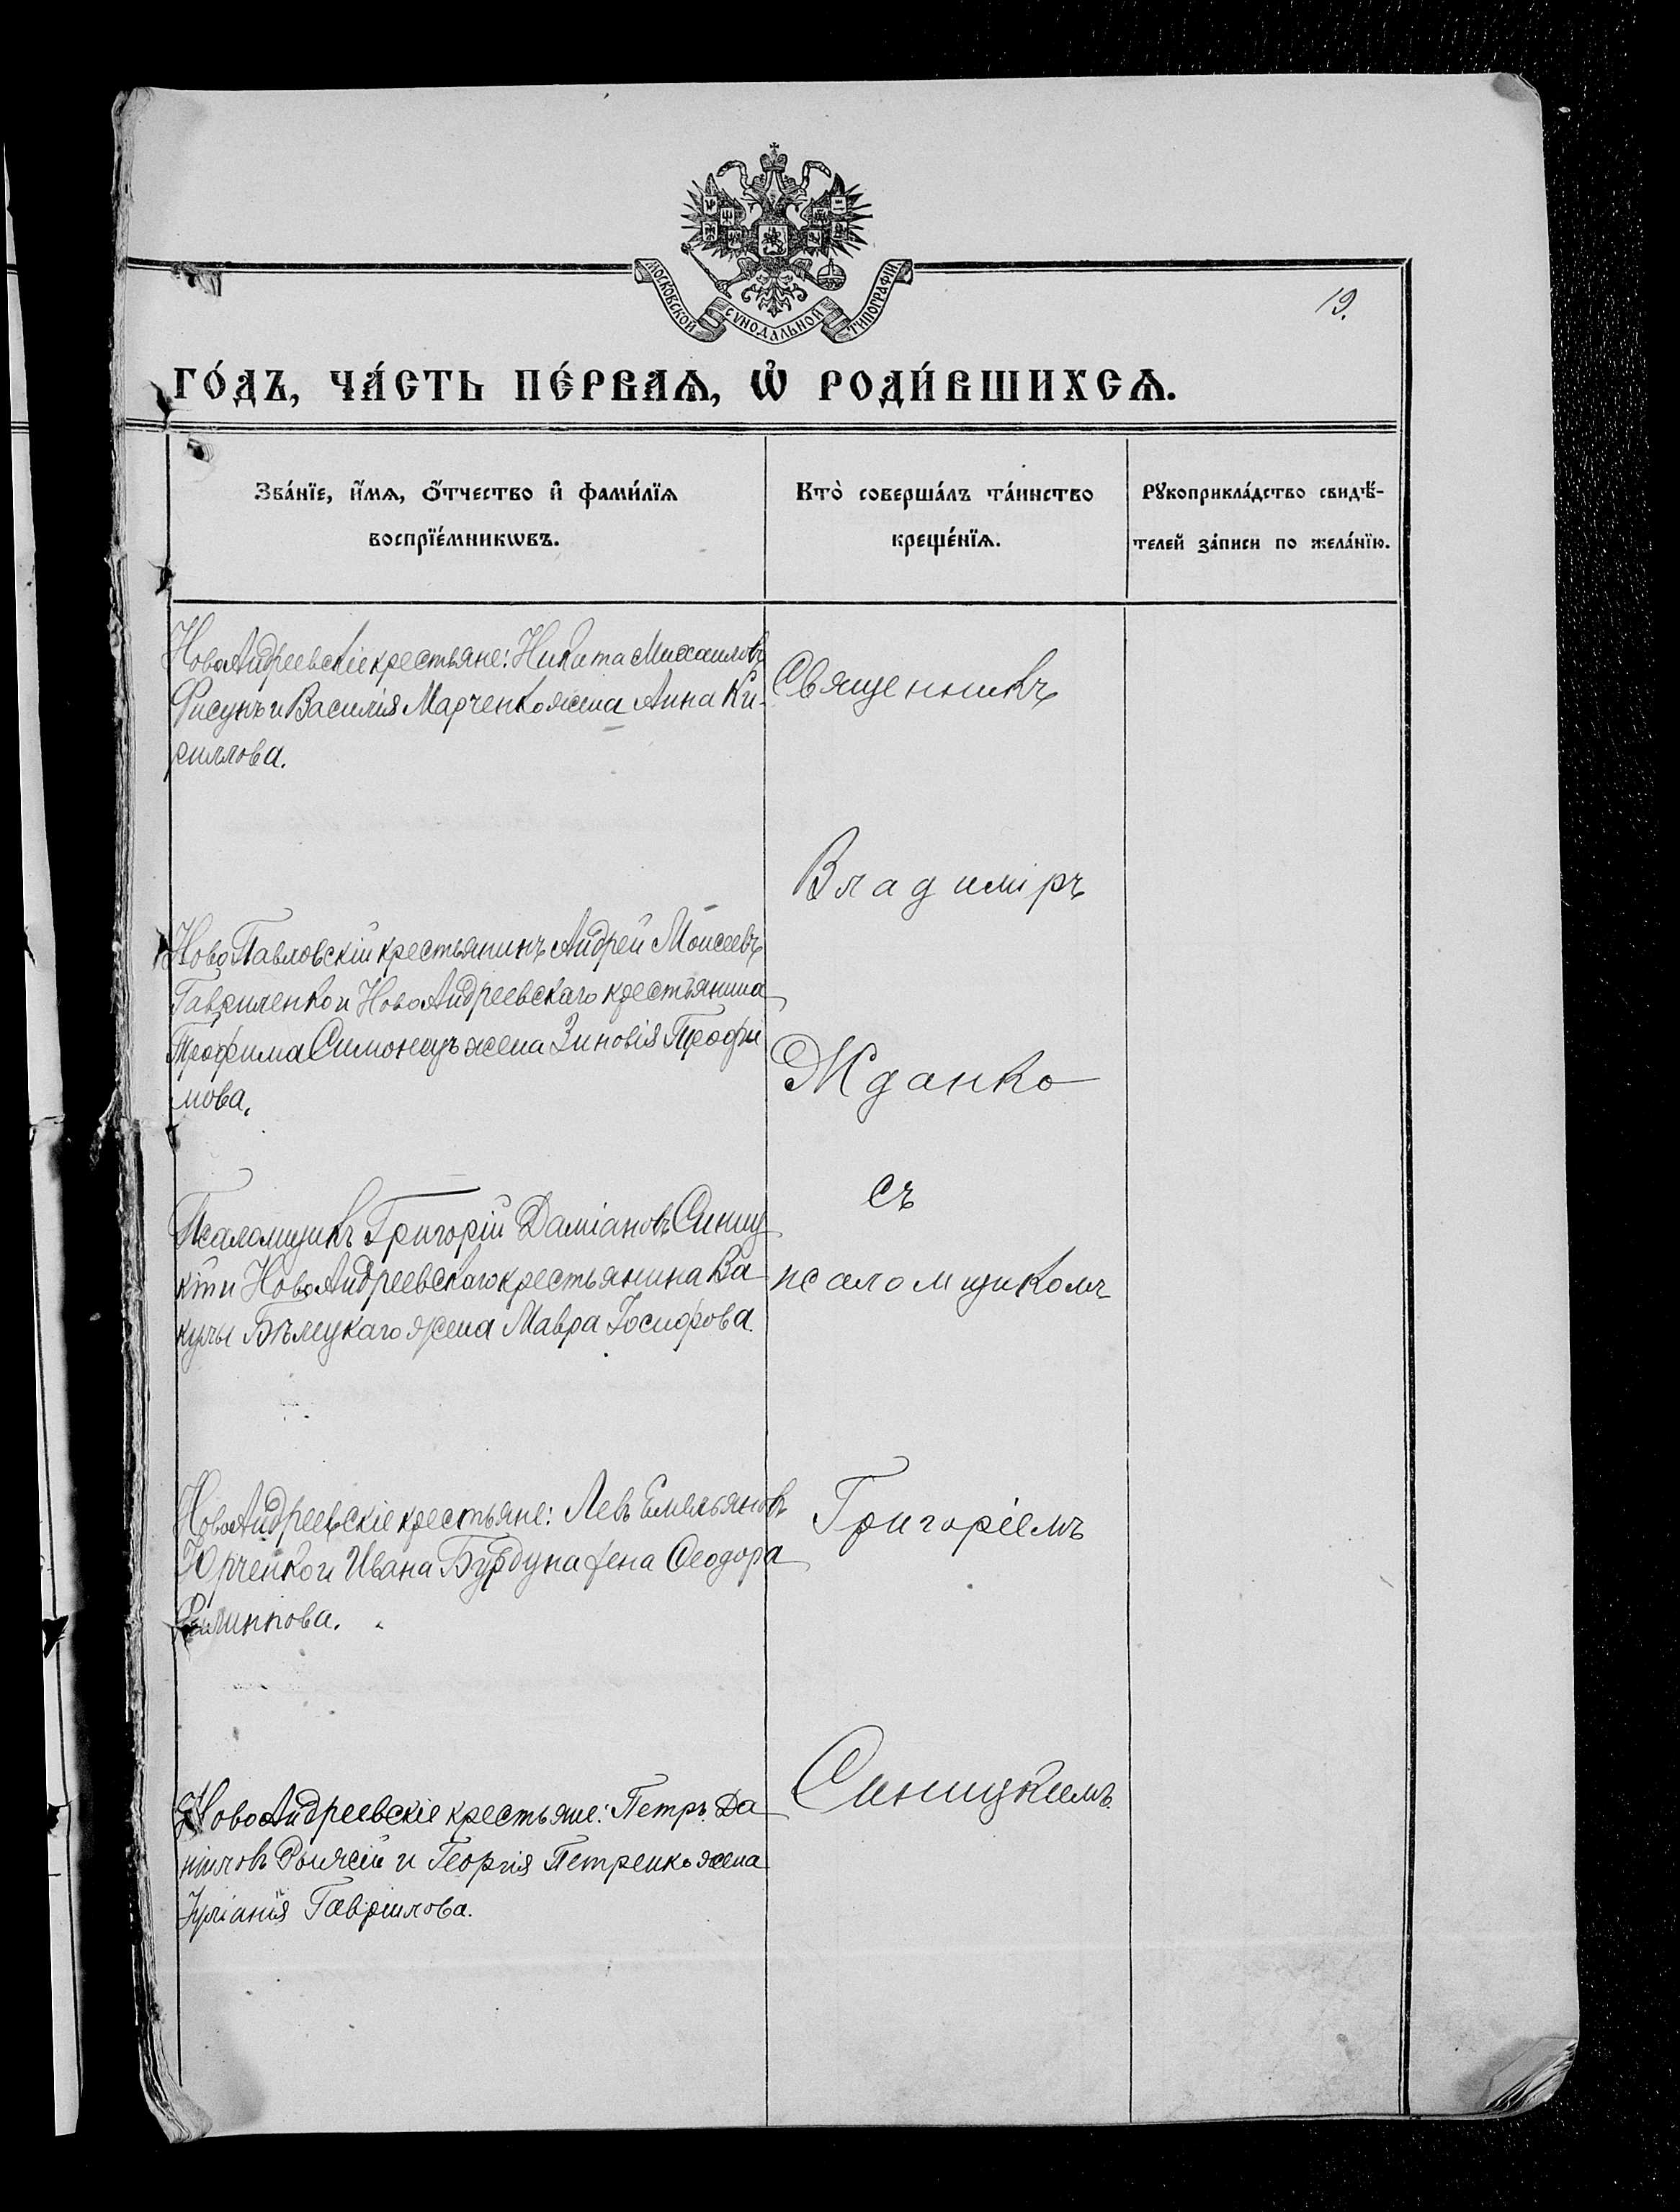 МОСКОВСКОЙ СѴНОДАЛЬНОЙ ТИПОГРАФІИ
19.
ГО́ДЪ, ЧА́СТЬ ПЕ́РВАѦ, Ѡ҆ РОДИ́ВШИХСѦ.
Зва́нїе, и҆́мѧ, ѻ҆́тчество и҆ фами́лїѧ
воспрїе́мникѡвъ.
Кто̀ соверша́лъ та́инство
креще́нїѧ.
Рꙋкоприкла́дство свидѣ́-
телей за́писи по жела́нїю.
НовоАндреевскіе крестьяне: Никита Михаиловъ
Фисунъ и Василія Марченко жена Анна Ки-
риллова.
НовоПавловскій крестьянинъ Андрей Моисеевъ
Гавриленко и НовоАндреевскаго крестьянина
Трофима Симонецъ жена Зиновія Трофи
мова.
Псаломщикъ Григорій Даміановъ Синиц
кій и НовоАндреевскаго крестьянина Ва
кулы Бѣлецкаго жена Мавра Іосифова.
НовоАндреевскіе крестьяне: Левъ Емельяновъ
Юрченко и Ивана Бурдуна жена Ѳеодора
Филиппова.
НовоАндреевскіе крестьяне: Петръ Да
ніиловъ и Георгія Петренко жена
Іуліанія Гавріилова.
Священникъ
Владиміръ
Жданко
съ
псаломщикомъ
Григоріемъ
Синицкимъ.